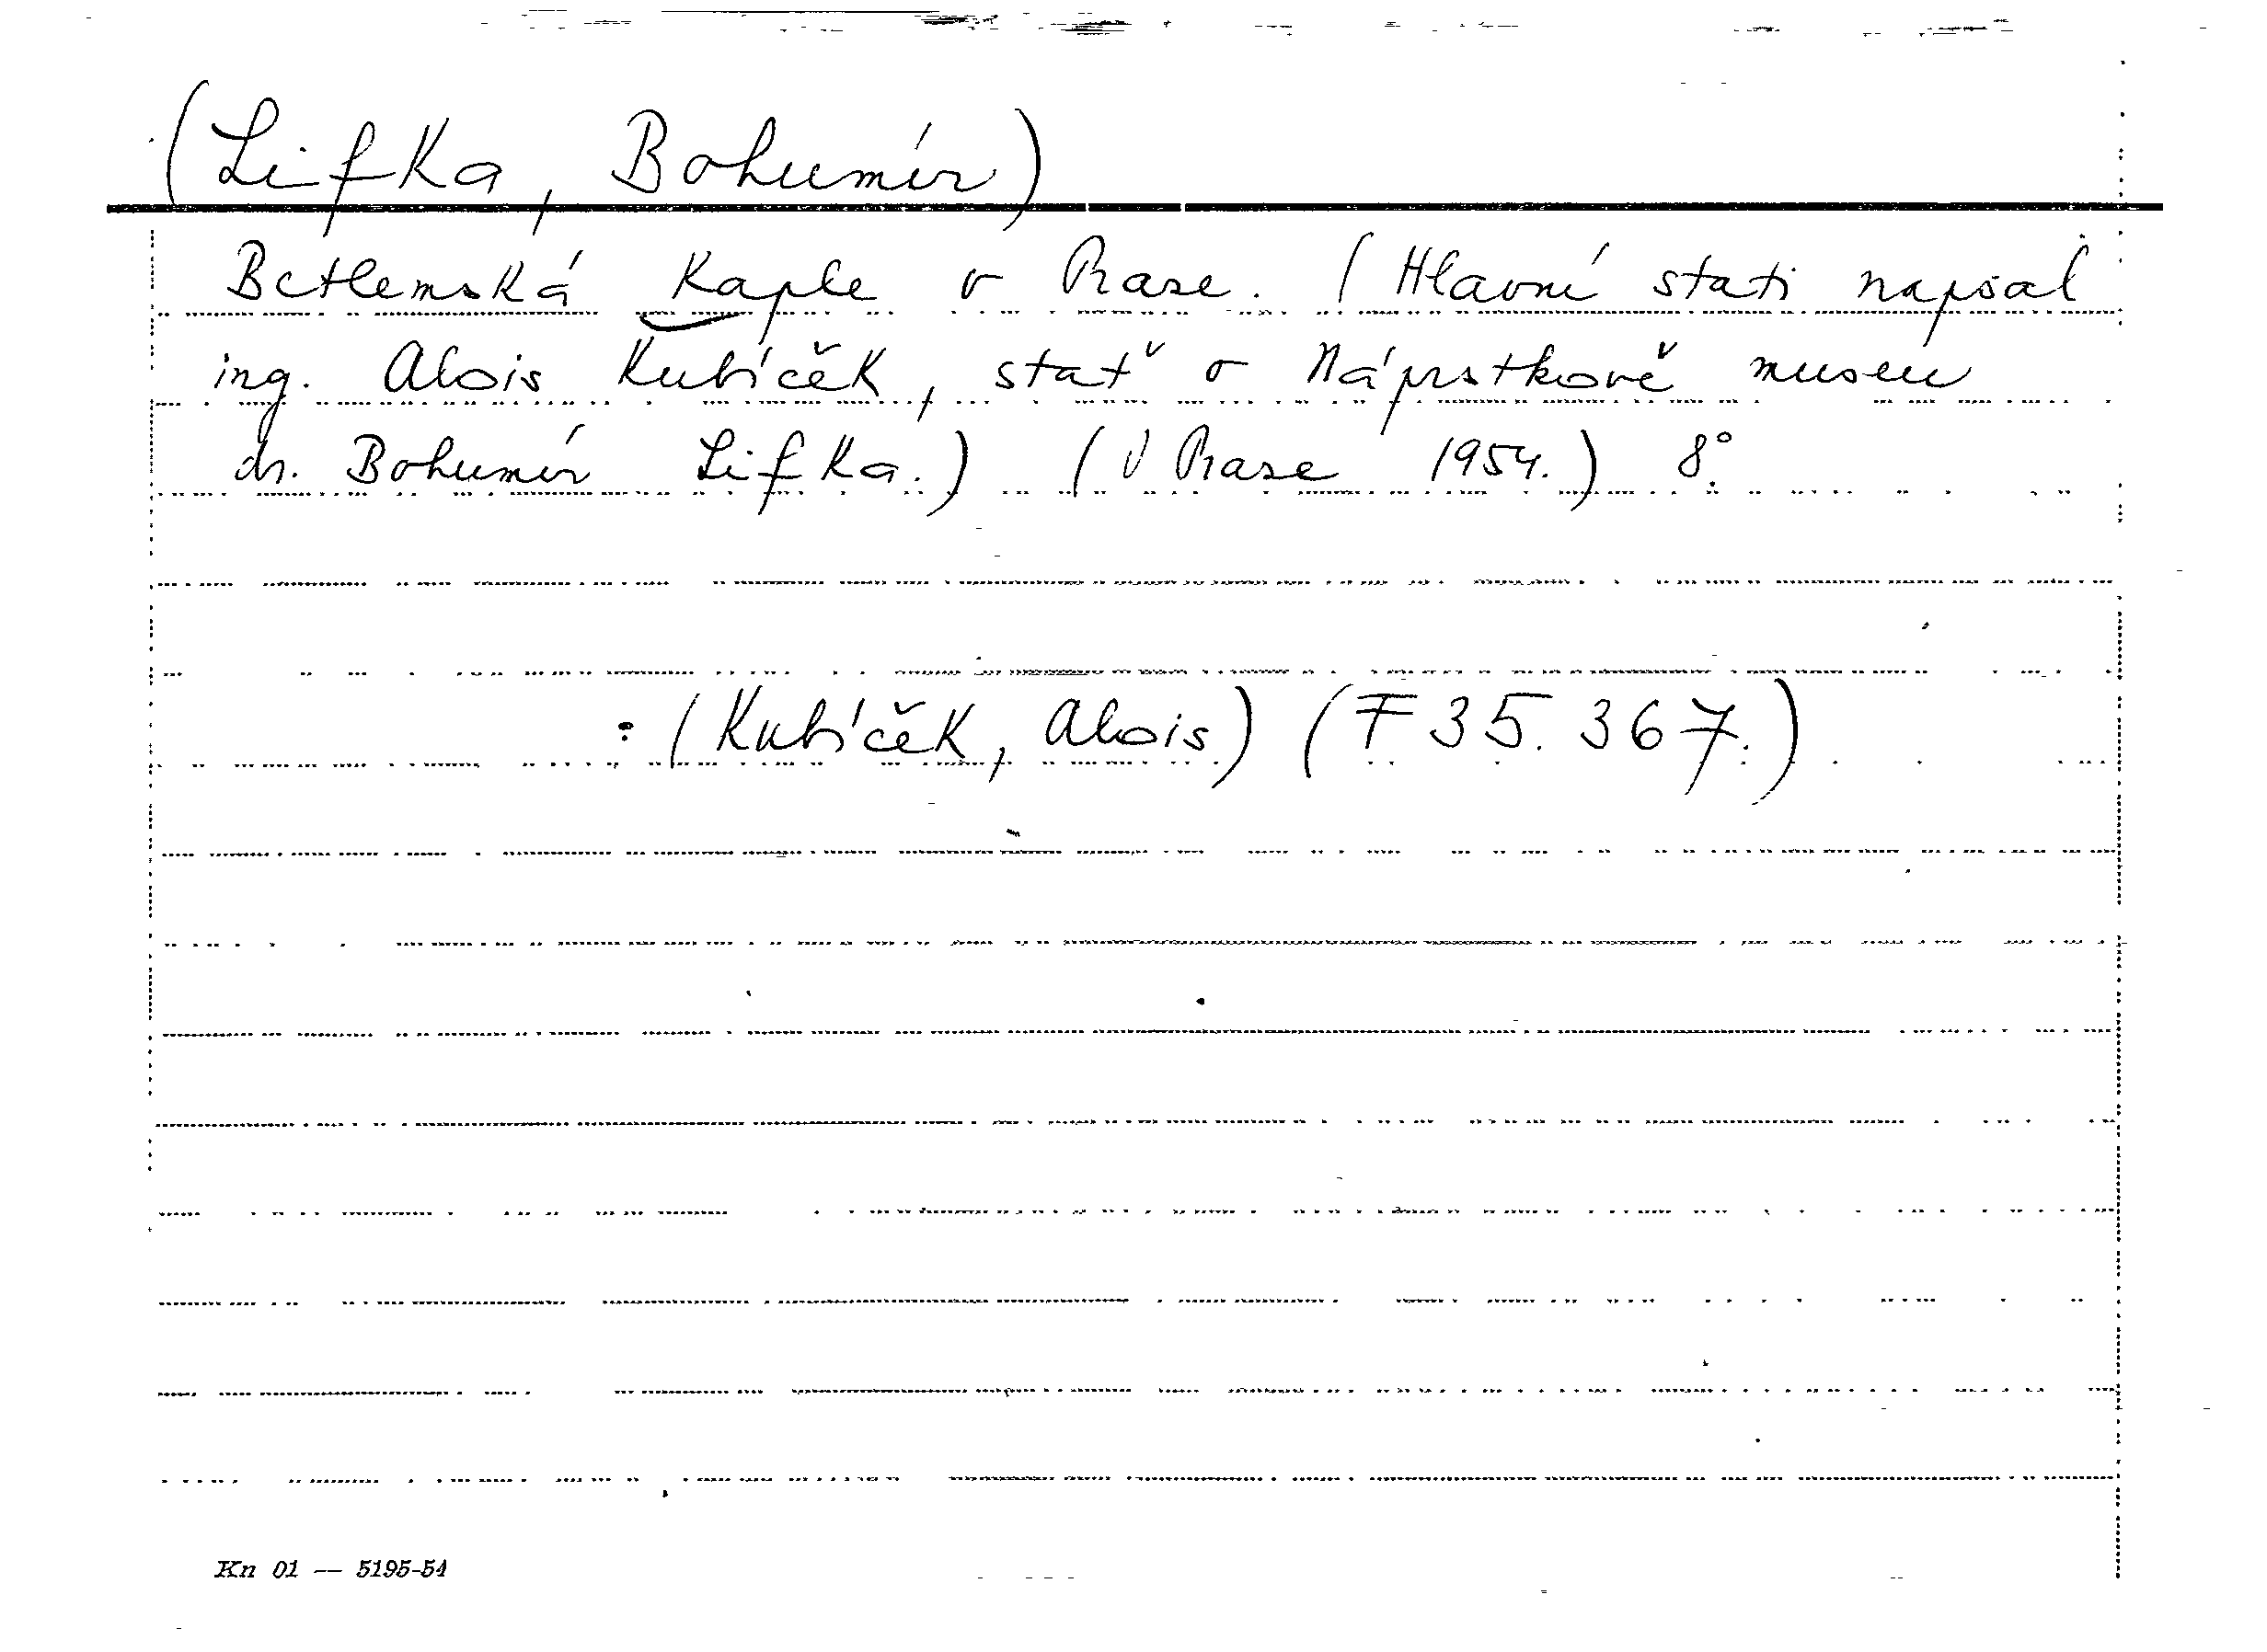 (Lifka, Bohumír)
Betlemská Kaple v Praze. (Hlavní stati napsal
ing. Alois Kubíček, stať o Náprstkově museu
dr. Bohumír Lifka.) (V Praze 1954.) 8°.
: (Kubíček, Alois) (F 35.367.)
Kn 01 — 5195-54